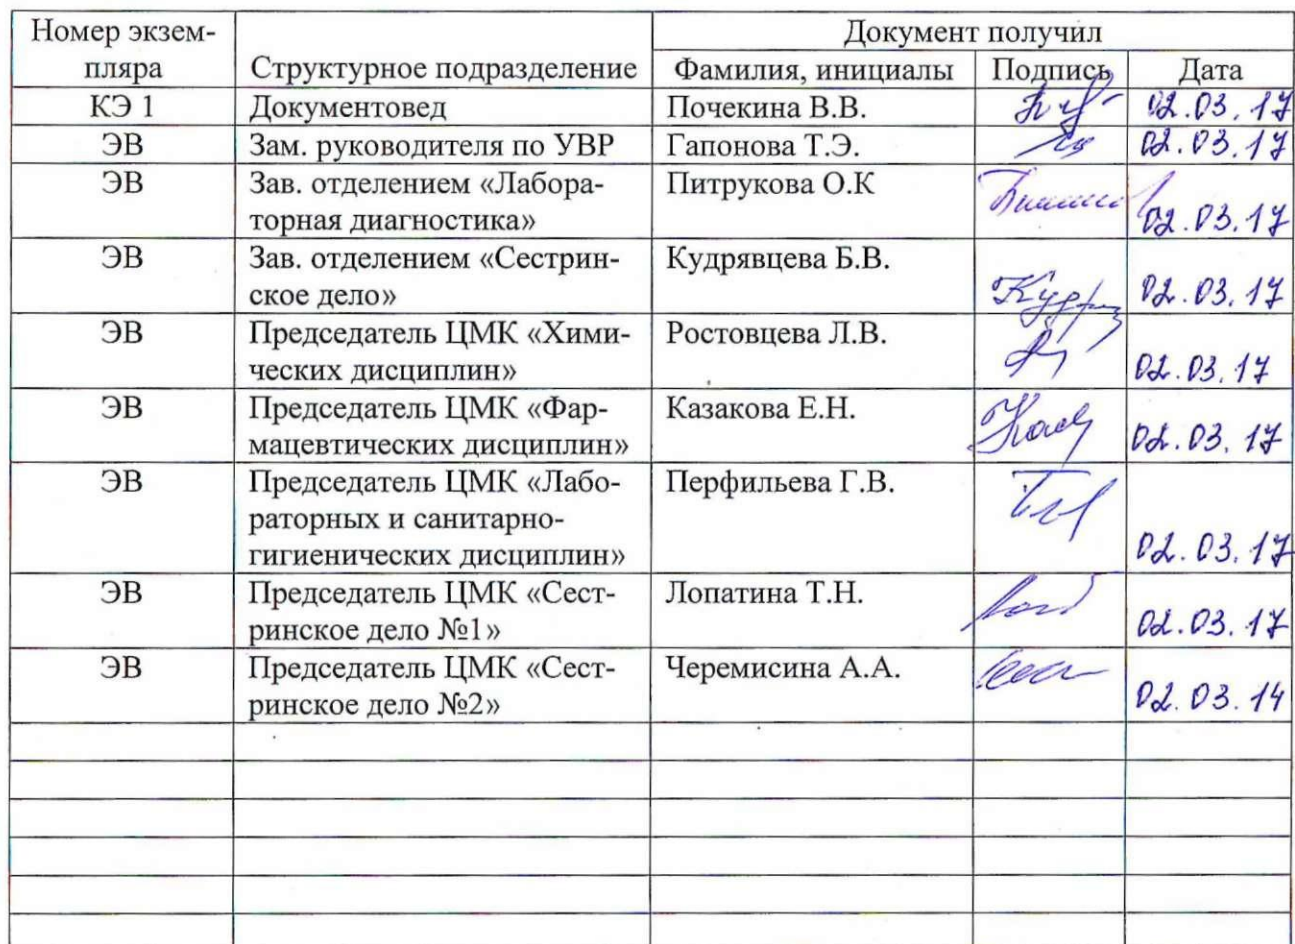 Номер экзем-
пляра
Структурное подразделение
Документ получил
Фамилия, инициалы
Подпись
Дата
КЭ 1
Документовед
Почекина В.В.
02.03.17
ЭВ
Зам. руководителя по УВР
Гапонова Т.Э.
02.03.17
ЭВ
Зав. отделением «Лабора-
торная диагностика»
Питрукова О.К
02.03.17
ЭВ
Зав. отделением «Сестрин-
ское дело»
Кудрявцева Б.В.
02.03.17
ЭВ
Председатель ЦМК «Хими-
ческих дисциплин»
Ростовцева Л.В.
02.03.17
ЭВ
Председатель ЦМК «Фар-
мацевтических дисциплин»
Казакова Е.Н.
02.03.17
ЭВ
Председатель ЦМК «Лабо-
раторных и санитарно-
гигиенических дисциплин»
Перфильева Г.В.
02.03.17
ЭВ
Председатель ЦМК «Сест-
ринское дело №1»
Лопатина Т.Н.
02.03.17
ЭВ
Председатель ЦМК «Сест-
ринское дело №2»
Черемисина А.А.
02.03.14